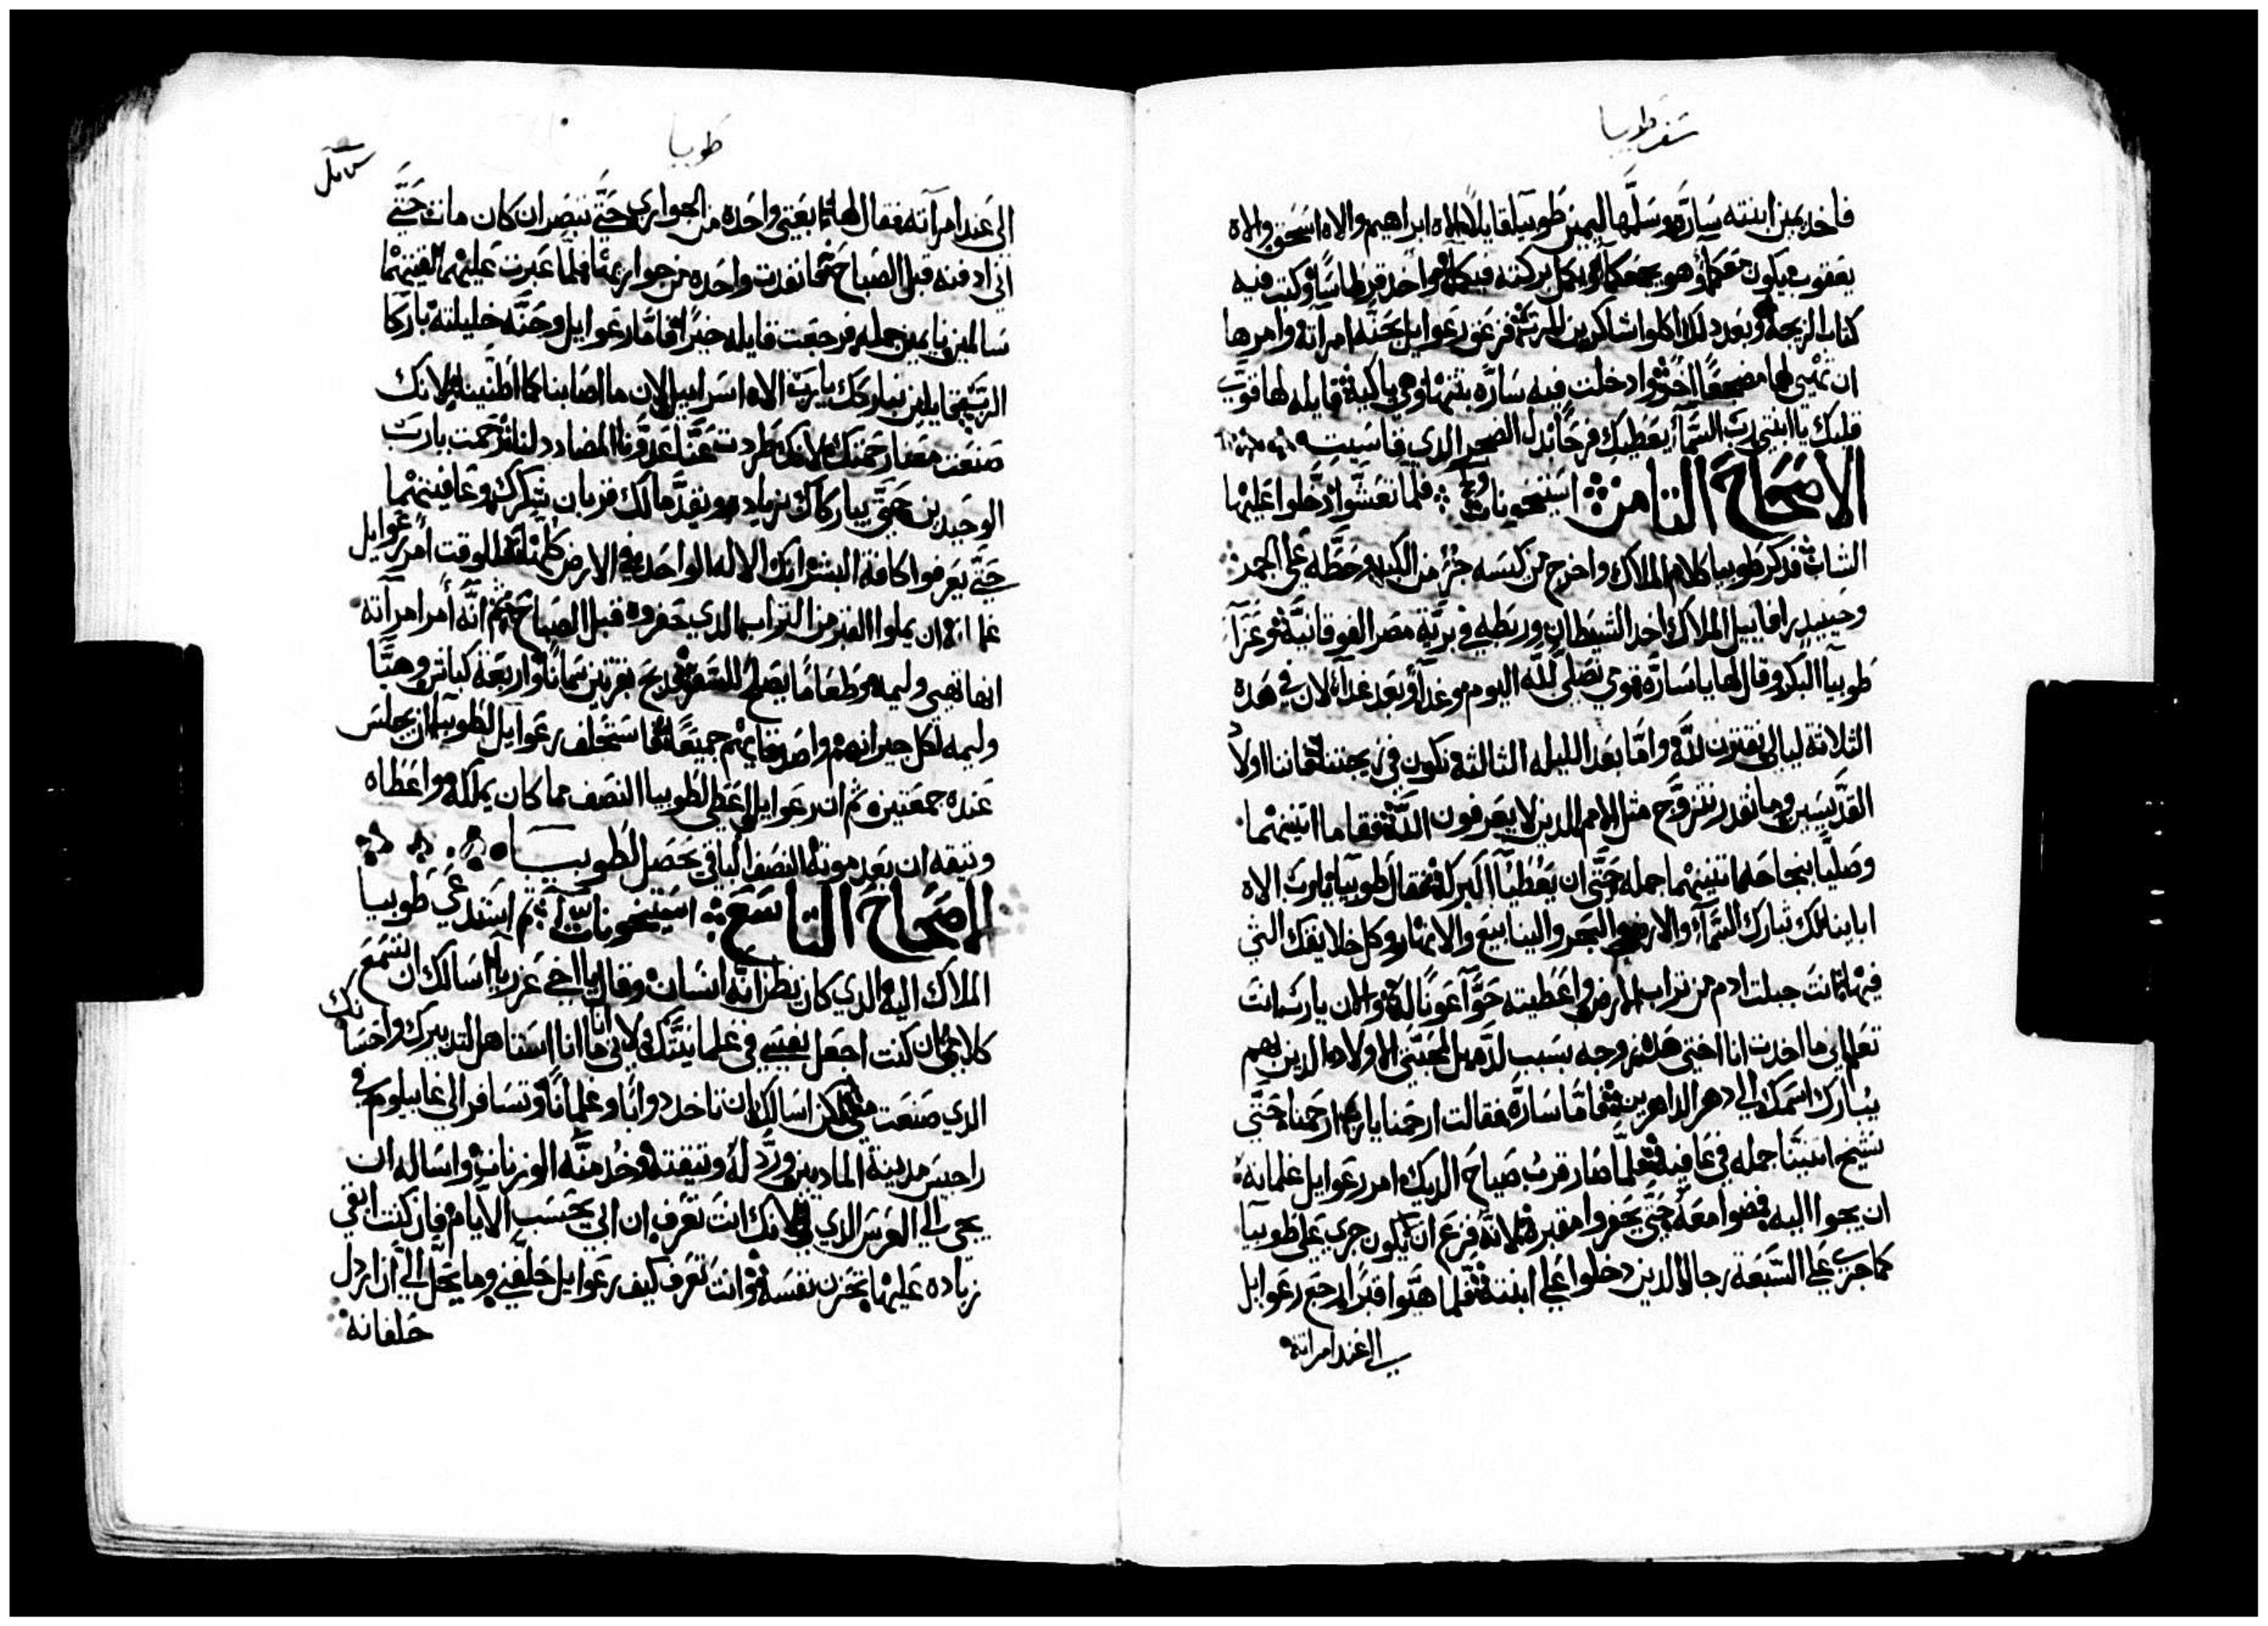 سفر طوبيا
فاخد يمين ابنته سارّه وسلّمها ليمين طوبيا قايلاً الاه ابراهيم والاه اسحق والاه
يعقوب يكون معكما وهو يجمعكما ويكمل بركته فيكما ثم واخد قرطاسًا وكتب فيه
كتاب الزيجه وبعد دلك اكلوا شاكرين للرب ثم فزعق رعوايل بحنّه امراته وامرها
ان تهيى لها مضجعًا اخر وادخلت فيه سارّه بنتها وهي باكية قايله لها قوّي
قلبك يا ابنتي ربّ السمآ يعطيك فرحًا بدل الضجر الدي قاسيت
الاصحاح التامن استيخونات فلما تعشّوا دخلوا عليها
الشاب فدكر طوبيا كلام الملاك واخرج من كيسه جزء من الكبد وحطّه على الجمر
وحينيد رافاييل الملاك اخد الشيطان وربطه في بريّة مصر الفوقانيّة ثم عزآ
طوبيآ البكر وقال لها يا سارّه قومي نصلي لله اليوم وغدآ وبعد غدآ لان في هده
التلاتة ليالي نقترن لله واما بعد الليله التالته نكون في زيجتنا فاننا اولاد
القدّيسين وما نقدر نتزوّج مثل الامم الدين لا يعرفون الله فقاما اتنينهما
وصليّا بنجاحه اتنينهما جمله حتى ان يعطيا البركة فقال طوبيا يا رب الاه
اباينا لك تبارك السمآ والارض والبحر والينابيع والانهار وكل خلايقك التي
فيها انت جبلت ادم من تراب الارض واعطيته حوّآ عونًا له والان يا رب انت
تعلم اني ما اخدت انا اختي هده زوجه بسبب لدّه بل لمحبتي الاولاد الدين بهم
يبارك اسمك الى دهر الداهرين فامّا سارّه فقالت ارحمنا يا رب ارحمنا حتى
نشيخ اتنيننا جمله في عافيه فلمّا صار قرب صياح الديك امر رعوايل غلمانه
ان يجوا اليه فمضوا معه حتى يحفروا مقبرة لانه فزع ان يكون جري على طوبيآ
كما جري على السبعة رجال الدين دخلوا على ابنته فلما هيّوا قبرًا رجع رعوايل
الى عند امراته
طوبيا
الى عند امرآته فقال لها ابعتي واحده من الجواري حتّى تبصر ان كان مات حتّى
اني ادفنه قبل الصباح فانفدت واحده من جواريها فلمّا عبرت عليهما لقيتهما
سالمين نايمين جمله فرجعت قايله خيرًا فامّا رعوايل وحنّه خليلته باركا
الربّ قايلين نباركك يا رب الاه اسراييل لان ما اصابنا كما اظنينا لانك
صنعت معنا رحمتك لانك طردت عنّا عدوّنا المضادد لنا ترحمت يا رب
الوحيدين حتى يباركاك بزياده ويقدّما لك قربان شكرك وعافيتهما
حتّى يعرفوا كافة البشر انك الاله الواحد في الارض كلها للوقت امر رعوايل
غلمانه ان يملوا القبر من التراب الدي حفروه قبل الصباح ثم انّه أمر امرآته
انها تهيى وليمه وطعامًا يصلح للسفر ودبح بقرتين سمانًا واربعة كباش وهيّا
وليمه لكل جيرانهم واصدقايهم جميعًا فاستحلف رعوايل لطوبيا ان يجلس
عنده جمعتين ثم ان رعوايل اعطى لطوبيا النصف مما كان يملك واعطاه
وتيقه ان بعد موته النصف الباقي يحصل لطوبيا
الاصحاح التاسع استيخونات ثم استدعى طوبيا
الملاك اليه الدي كان يظن انه انسان وقال يا اخي عزريا اسالك ان تسمع
كلامي ان كنت اجعل نفسي في غلمانيّتك لاني ما انا استاهل لتدبيرك واحسانك
الدي صنعت معي لكن اسالك ان تاخد دوابًا وغلمانًا وتسافر الى غابيلوم في
راجيس مدينة الماديين وردّ له وتيقته وخد منه الوزنات واساله ان
يجى الى العرس الدي لي لانك انت تعرف ان ابي يحسب الايام فان كنت ابقي
زياده عليها تحزن نفسه وانت تعرف كيف رعوايل حلفني وما يحلّ لي ان اردل
حلفانه